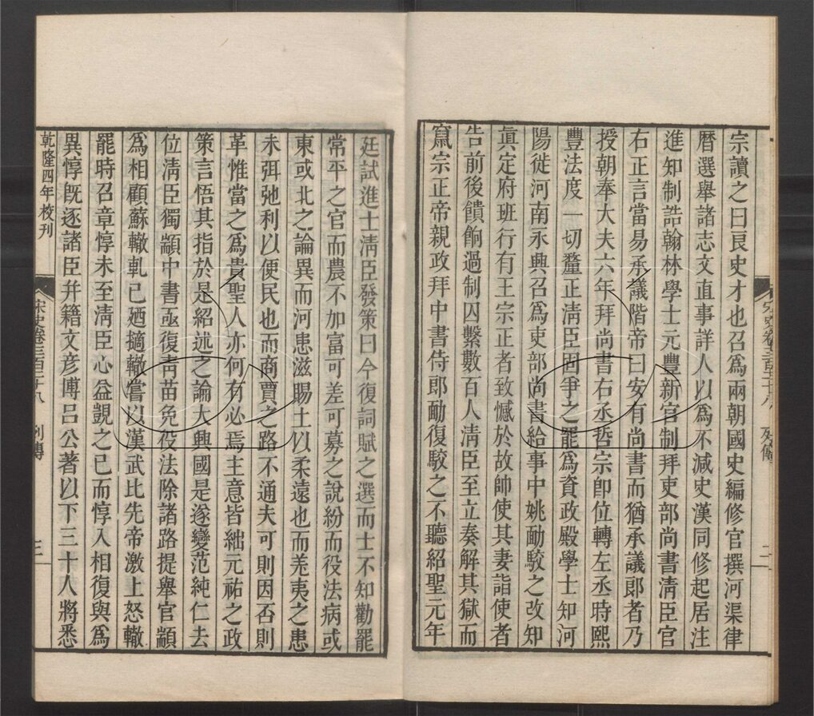 宗讀之曰良史才也召爲兩朝國史編修官撰河渠律
曆選舉諸志文直事詳人以爲不減史漢同修起居注
進知制誥翰林學士元豐新官制拜吏部尚書清臣官
右正言當易承議階帝曰安有尚書而猶承議郎者乃
授朝奉大夫六年拜尚書右丞哲宗卽位轉左丞時熙
豐法度一切釐正清臣固爭之罷爲資政殿學士知河
陽徙河南永興召爲吏部尚書給事中姚勔駮之改知
眞定府班行有王宗正者致憾於故帥使其妻詣使者
告前後饋餉過制囚繫數百人清臣至立奏解其獄而
竄宗正帝親政拜中書侍郎勔復駮之不聽紹聖元年
宋史卷三百二十八 列傳 二
廷試進士清臣發策曰今復詞賦之選而士不知勸罷
常平之官而農不加富可差可募之說紛而役法病或
東或北之論異而河患滋賜土以柔遠也而羌夷之患
未弭弛利以便民也而商賈之路不通夫可則因否則
革惟當之爲貴聖人亦何有必焉主意皆絀元祐之政
策言悟其指於是紹述之論大興國是遂變范純仁去
位清臣獨顓中書亟復靑苗免役法除諸路提舉官顓
爲相顧蘇轍軋己廼擿轍嘗以漢武比先帝激上怒轍
罷時召章惇未至清臣心益覬之已而惇入相復與爲
異惇旣逐諸臣幷籍文彦博呂公著以下三十人將悉
乾隆四年校刊 宋史卷三百二十八 列傳 三